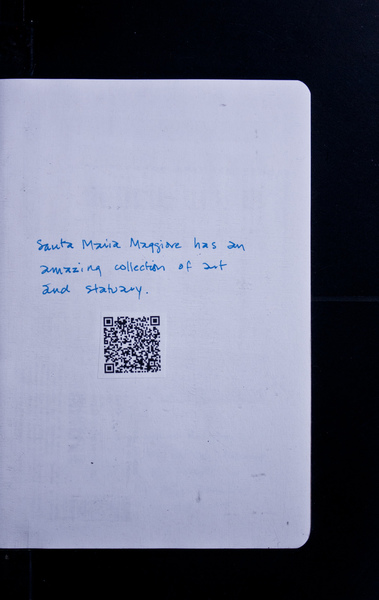 Santa Maria Maggiore has an
amazing collection of art
and statuary.